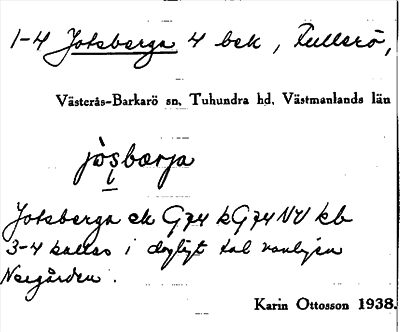 1-4 Jotsberga 4 bek, Fullerö,
Västerås-Barkarö sn, Tuhundra hd, Västmanlands län
jòsbærja
Jotsberga ek G74 kG74NV kb
3-4 kallas i dagligt tal vanligen
Norgården.
Karin Ottosson 1938.